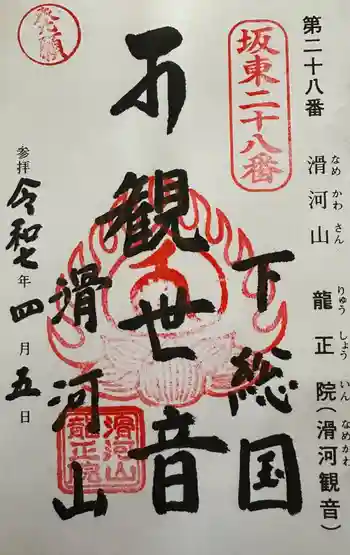 第二十八番 滑河山 龍正院(滑河観音)
なめかわさん りゅうしょういん なめかわ
坂東二十八番
下総国
観世音
滑河山
発願
参拝 令和七年四月五日
滑河山
龍正院